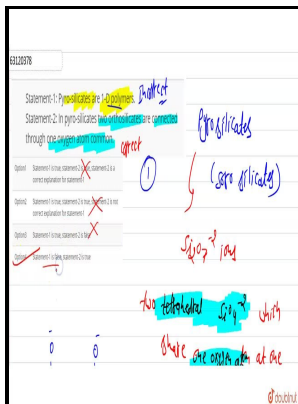 63120378
Statement-1: Pyro-silicates are 1-D polymers. Incorrect
Statement-2: In pyro-silicates two orthosilicates are connected
through one oxygen atom common. correct
Option1 Statement-1 is true, statement-2 is true, statement-2 is a
correct explanation for statement-1
Option2 Statement-1 is true, statement-2 is true, statement-2 is not
correct explanation for statement-1
Option3 Statement-1 is true, statement-2 is false
Option4 Statement-1 is false, statement-2 is true
1
Pyrosilicates
(soro silicates)
Si2O7 ions
two tetrahedral SiO4 which
share one oxygen atom at one
O O
doubtnut